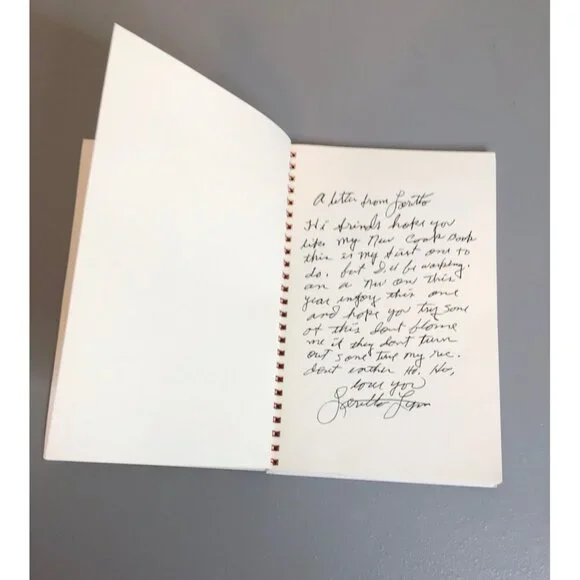 A letter from Loretta
Hi friends hope you
like my New Cook Book
this is my first one to
do. but I,d be working.
on a New one this
year injoy this one
and hope you try some
of this dont blame
me if they dont turn
out some time my rec.
dont eather Ho. Ho,
love you
Loretta Lynn